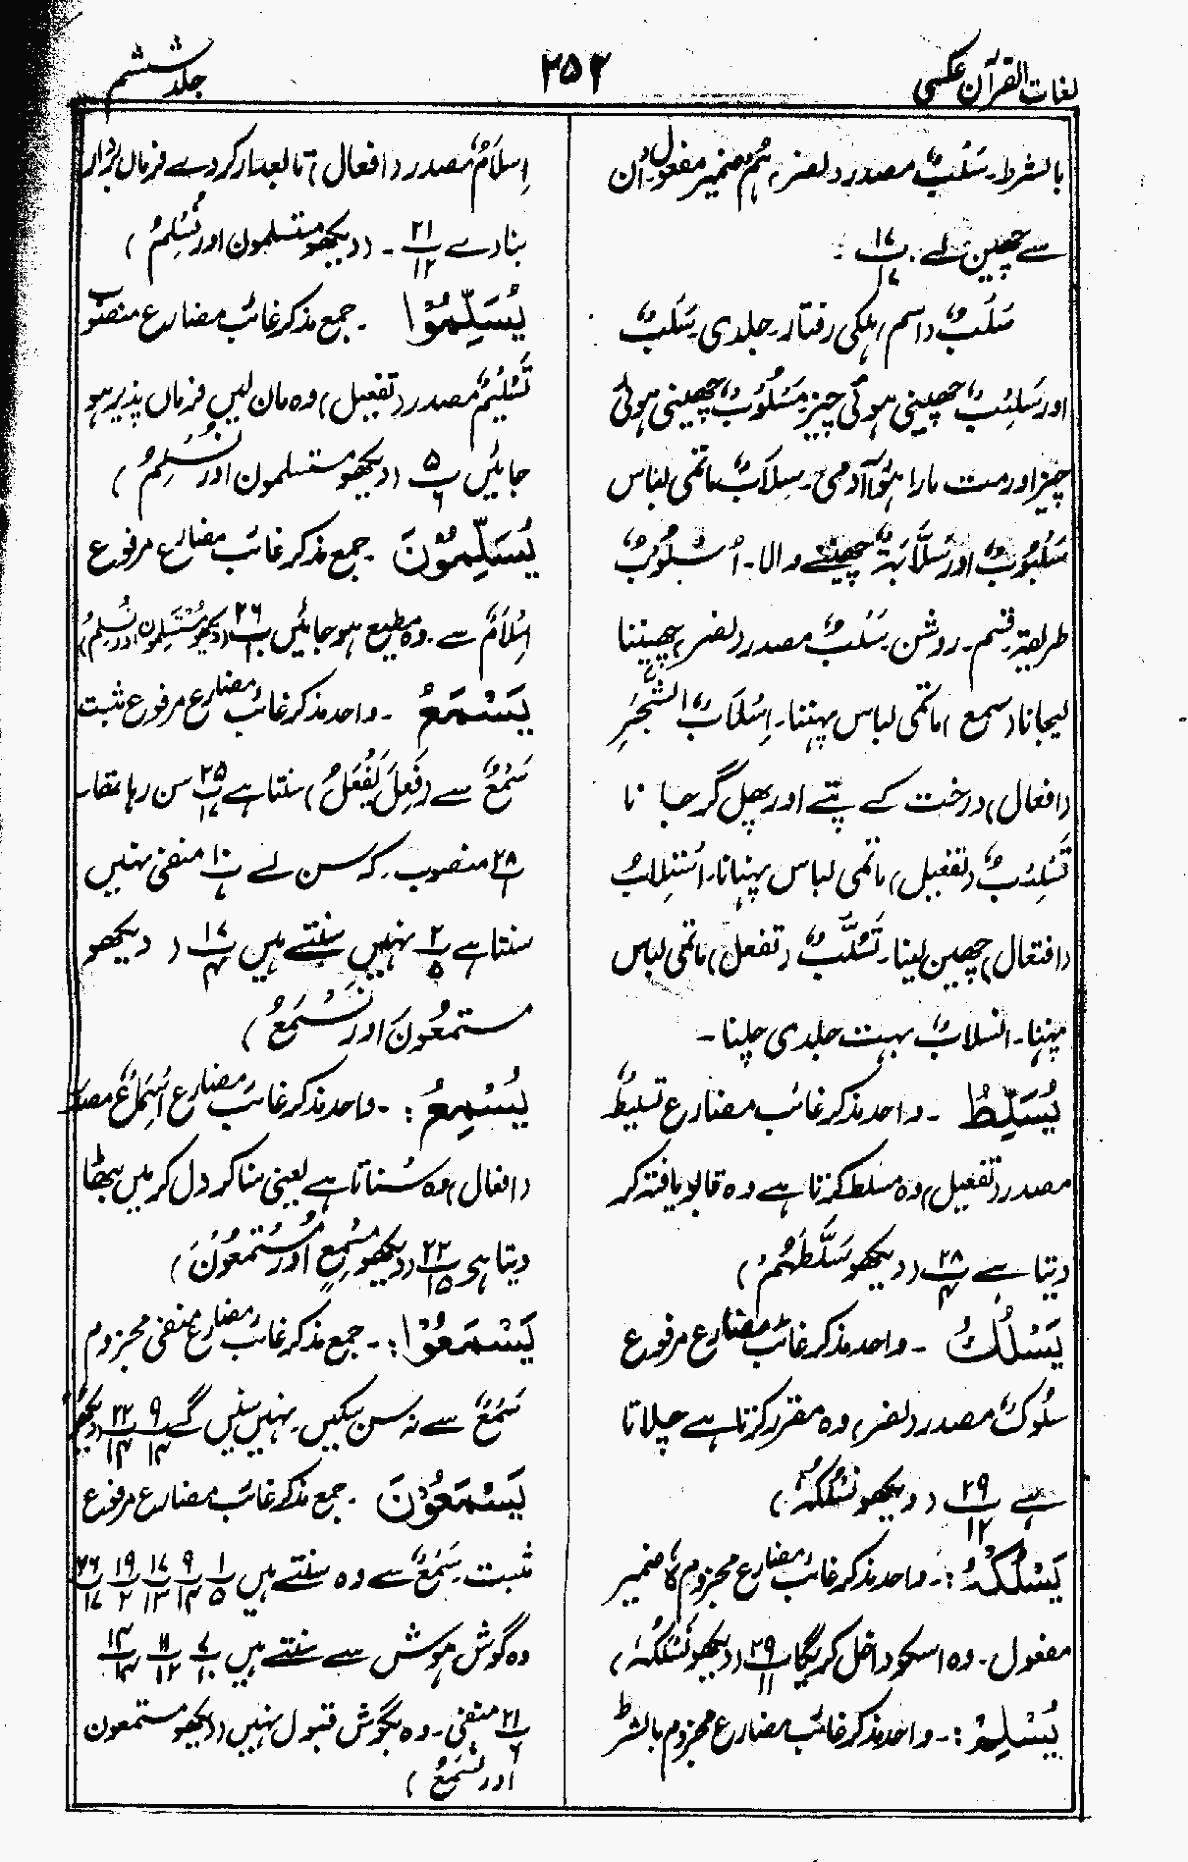 لغات القرآن عکسی
۲۵۲
جلد ششم
بالشرط۔ سَلْبٌ مصدر (نصر) ہُم ضمیر مفعول اُن
سے چھین لے پ ۱۷/۱۷ :
سَلَبٌ (اسم) ہلکی رفتار۔ جلدی۔ سَلَبٌ
اور سَلِیْبٌ چھینی ہوئی چیز مَسْلُوْبٌ چھینی ہوئی
چیز اور مت مارا ہوُا آدمی۔ سِلَابٌ ماتمی لباس
سَلُبُوْبٌ اور سَلَّابَۃٌ چھیننے والا۔ اُسْلُوْبٌ
طریقہ قسم۔ روشن۔ سَلْبٌ مصدر (نصر) چھیننا
لیجانا (سمع) ماتمی لباس پہننا۔ اِسْلَابُ الشَّجَرِ
(افعال) درخت کے پتّے اور پھل گر جانا
تَسْلِیْبٌ (تفعیل) ماتمی لباس پہنانا۔ اسْتِلَابٌ
(افتعال) چھین لینا۔ تَسَلُّبٌ (تفعل) ماتمی لباس
پہننا۔ انسلابٌ بہت جلدی چلنا۔
یُسَلِّطُ ۔ واحد مذکر غائب مضارع تسلیطٌ
مصدر (تفعیل) وہ مسلط کرتا ہے وہ قابو یافتہ کر
دیتا ہے پ ۲۸/۴ (دیکھو سَلَّطَہُمْ)
یَسْلُکُ ۔ واحد مذکر غائب مضارع مرفوع
سلُوکٌ مصدر (نصر) وہ مقرر کرتا ہے چلاتا
ہے ۲۹/۱۲ (دیکھو نَسْلُکُہٗ)
یَسْلُکْہُ :۔ واحد مذکر غائب مضارع مجزوم ہٗ ضمیر
مفعول۔ وہ اسکو داخل کریگا پ ۲۹/۱۱ (دیکھو نَسْلُکُہٗ)
یُسْلِمْ :۔ واحد مذکر غائب مضارع مجزوم بالشرط
اِسلَامٌ مصدر (افعال) تابعدار کردے فرماں بردار
بنا دے ۲۱/۱۲ ۔ (دیکھو مستسلمون اور نُسْلِمُ)
یُسَلِّمُوْا ۔ جمع مذکر غائب مضارع منصوب
تَسْلِیْمٌ مصدر (تفعیل) وہ مان لیں فرماں پذیر ہو
جائیں پ ۵/۶ (دیکھو مستسلمون اور نُسْلِمُ)
یُسَلِّمُوْنَ ۔ جمع مذکر غائب مضارع مرفوع
اِسْلَامٌ سے۔ وہ مطیع ہو جائیں پ ۲۶/۱۰ (دیکھو مُسْتَسْلِمُون اور نُسْلِمُ)
یَسْمَعُ ۔ واحد مذکر غائب مضارع مرفوع مثبت
سَمْعٌ سے (فَعِلَ یَفْعَلُ) سنتا ہے پ ۲۵/۱۷ سن رہا تھا۔
۲۸/۱ منصوب۔ کہ سن لے پ ۱۰/۷ منفی نہیں
سنتا ہے ۲/۵ نہیں سنتے ہیں ۱۷/۴ (دیکھو
مستمعُونَ اور نَسْمَعُ)
یُسْمِعُ :۔ واحد مذکر غائب مضارع اِسْمَاعٌ مصدر
(افعال) وہ سُناتا ہے یعنی سنا کر دل کر میں بٹھا
دیتا ہی ۲۲/۱۵ (دیکھو مُسْمِعٍ اور مُسْتَمِعُوْنَ)
یَسْمَعُوْا :۔ جمع مذکر غائب مضارع منفی مجزوم
سَمْعٌ سے نہ سن سکیں۔ نہیں سنیں گے ۹/۱۴ ۲۲/۱۴ (دیکھو
یَسْمَعُوْنَ ۔ جمع مذکر غائب مضارع مرفوع
مثبت۔ سَمْعٌ سے وہ سنتے ہیں ۱/۵ ۹/۱۲ ۱۷/۱۳ ۱۹/۲ ۲۶/۱۷
وہ گوش ہوش سے سنتے ہیں ۷/۱۰ ۱۱/۱۲ ۱۴/۱۴
۲۱/۶ منفی۔ وہ بگوش قبول نہیں (دیکھو مستمعون
اور نَسْمَعُ)